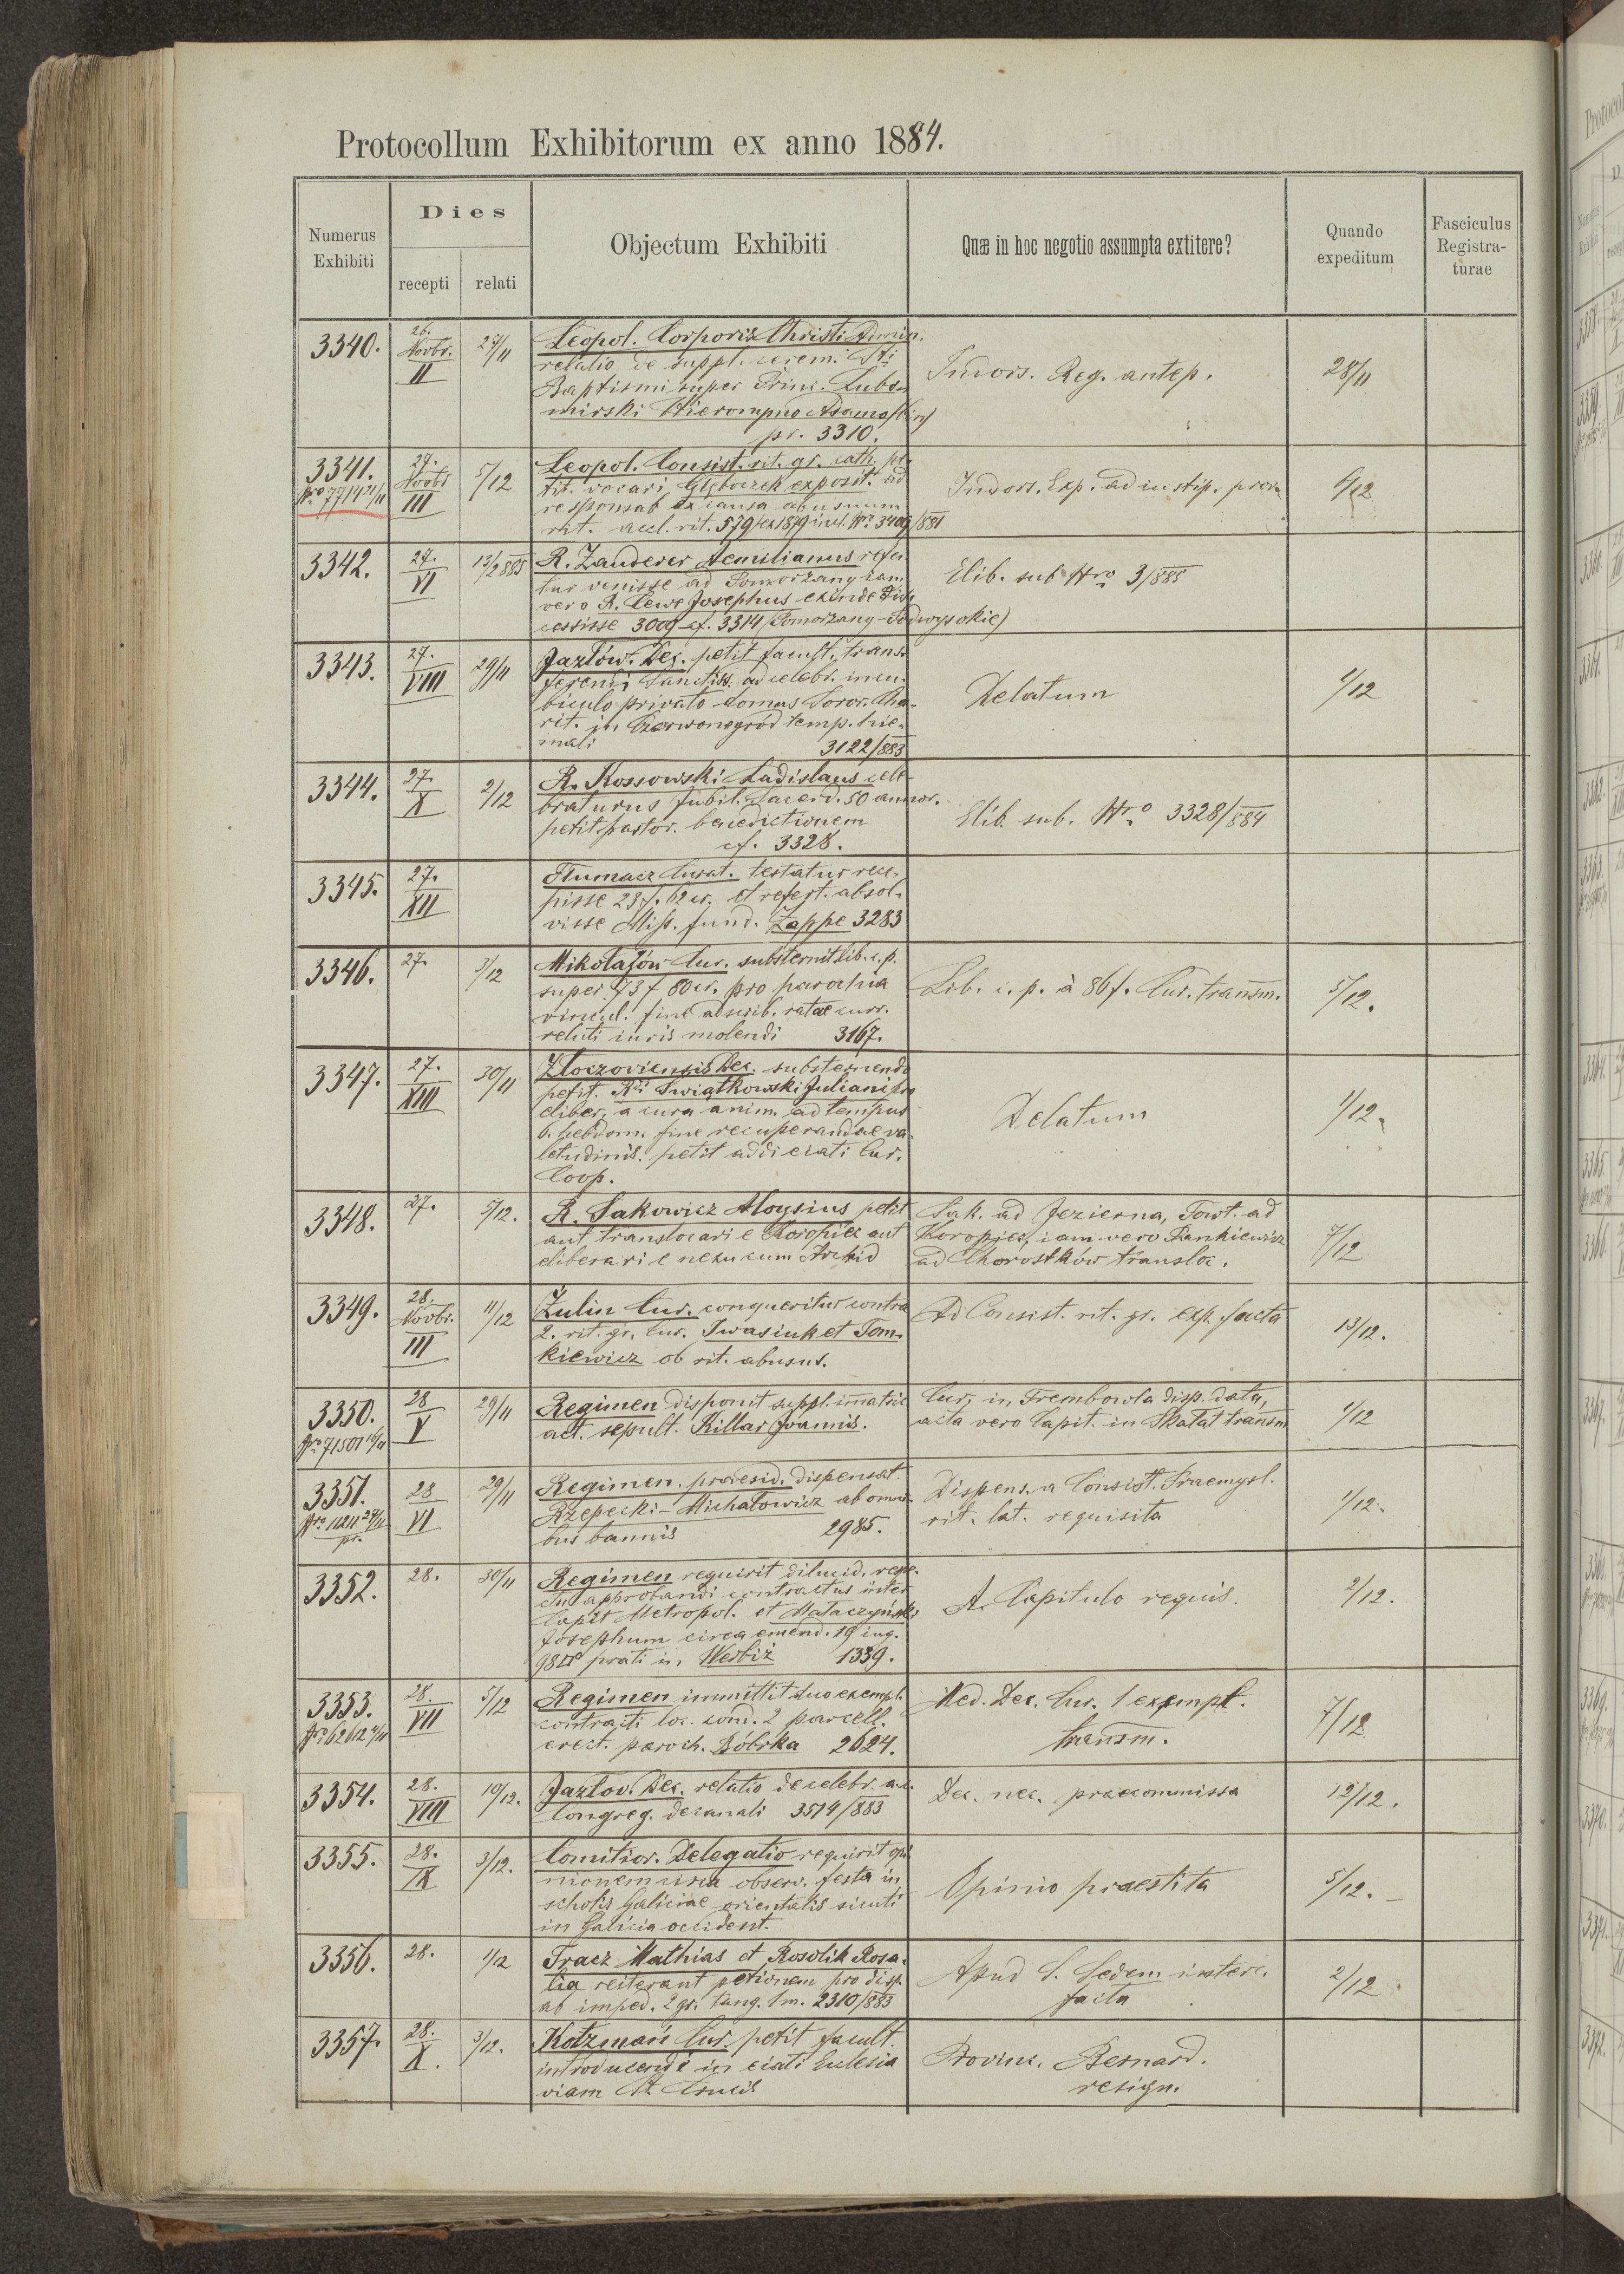 Protocollum Exhibitorum ex anno 1884.
Numerus Exhibiti
Dies
recepti
relati
Objectum Exhibiti
Quæ in hoc negotio assumpta extitere?
Quando expeditum
Fasciculus Registra-turae
3340.
26. Novbr. II
27/11
Leopol. Corporis Christi Admin.
relatio de suppl. cerem. Sti
Baptismi super Princ. Lubo-
mirski Hieronymo Adamo
pr. 3310.
Indors. Reg. antep.
28/11
3341.
Nro 7714 21/11
27. Novbr III
5/12
Leopol. Consist. rit. gr. cath. pe-
tit. vocari Głęboczek exposit. ad
responsab ex causa abusuum
rit. accl. rit. 579 ex 1879 incl. Nro 3409/881
Indors. Exp. ad
6/12
3342.
27. VI
13/2 885
R. Zauderer Aemilianus refer-
tur venisse ad Pomorzany iam
vero R. Lewe Josephus exinde dis-
cessisse 3009 cf. 3314 (Pomorzany-Podwysokie)
Elib. sub Nro 3/885
3343.
27. VIII
29/11
Jazłów. Dec. petit facult. trans-
ferendi Sanctiss. ad celebr. in cu-
biculo privato domus Soror. Cha-
rit. in Czerwonogród temp. hie-
mali 3122/883
Delatum
1/12
3344.
27. X
2/12
R. Kossowski Ladislaus cele-
braturus Jubil. Sacerd. 50 annor.
petit pastor. benedictionem
cf. 3328.
Elib. sub. Nro 3328/884
3345.
27. XII
Tłumacz Curat. testatur rece-
pisse 23 f. 62 cr. et refert. absol-
visse Miss. fund. Zappe 3283
3346.
27.
3/12
Mikołajów Cur. substernit lib. c. p.
super 73 f 80 cr. pro parochia
vincul. fine adscrib. ratae curr.
reluti iuris molendi 3167.
Lib. c. p. à 86 f. Cur. transm.
5/12.
3347.
27. XIII
30/11
Złoczoviensis Dec. substernendo
petit. Rdi Swiątkowski Juliani pro
eliber. a cura anim. ad tempus
6. hebdom. fine recuperandae va-
letudinis. petit addi eiati Cur.
Coop.
Delatum
1/12.
3348.
27.
5/12.
R. Sakowicz Aloysius petit
aut translocari e Koropiec aut
eliberari e nexu cum Archid
Sak. ad Jezierna, Towt. ad
Koropiec, iam vero Pankiewicz
ad Chorostków transloc.
7/12
3349.
28. Novbr. III
11/12
Żulin Cur. conqueritur contra
2. rit. gr. Cur. Iwasiuk et Tom-
kiewicz ob rit. abusus.
Ad Consist. rit. gr. exp. facta
13/12.
3350.
Nro 71501 16/11
28 V
29/11
Regimen disponit suppl. immatric
act. sepult. Killar Joannis.
Cur. in Trembowla disp. data,
acta vero Capit. in Skałat transm
1/12
3351.
Nro 11211 27/11 pr.
28 VI
29/11
Regimen. praesid. dispensat.
Rzepecki-Michałowicz ab omni-
bus bannis 2985.
Dispens. a Consist. Praemysl.
rit. lat. requisita
1/12.
3352.
28.
30/11
Regimen requirit dilucid. resp.
approbandi contractus inter
Capit Metropol. et Mataczyński
Josephum circa emend. 19 iug.
prati in Werbiż 1339.
A Capitulo requis.
2/12.
3353.
Nro 62612 21/11
28. VII
5/12
Regimen immittit duo exempl.
contracti loc. cond. 2 parcell.
erect. paroch. Bóbrka 2624.
Med. Dec. Cur. 1 exempl.
transm.
7/12
3354.
28. VIII
10/12.
Jazłov. Dec. relatio de celebr. a.c.
Congreg. decanali 3514/883
Dec. nec. praecommissa
12/12.
3355.
28. IX
3/12.
Comitior. Delegatio requirit opi
nionem circa observ. festa in
scholis Galiciae orientalis sicuti
in Galicia occident.
Opinio praestita
5/12.-
3356.
28.
1/12
Tracz Mathias et Rosolik Rosa-
lia reiterant petionem pro disp.
ab imped. 2 gr. tang. 1 m. 2310/883
Apud S. Sedem interc.
facta
2/12
3357.
28. X.
3/12.
Kotzmań Cur. petit facult.
introducendi in eiati Eclesia
viam St. Crucis
Provinc. Bernard.
resign.